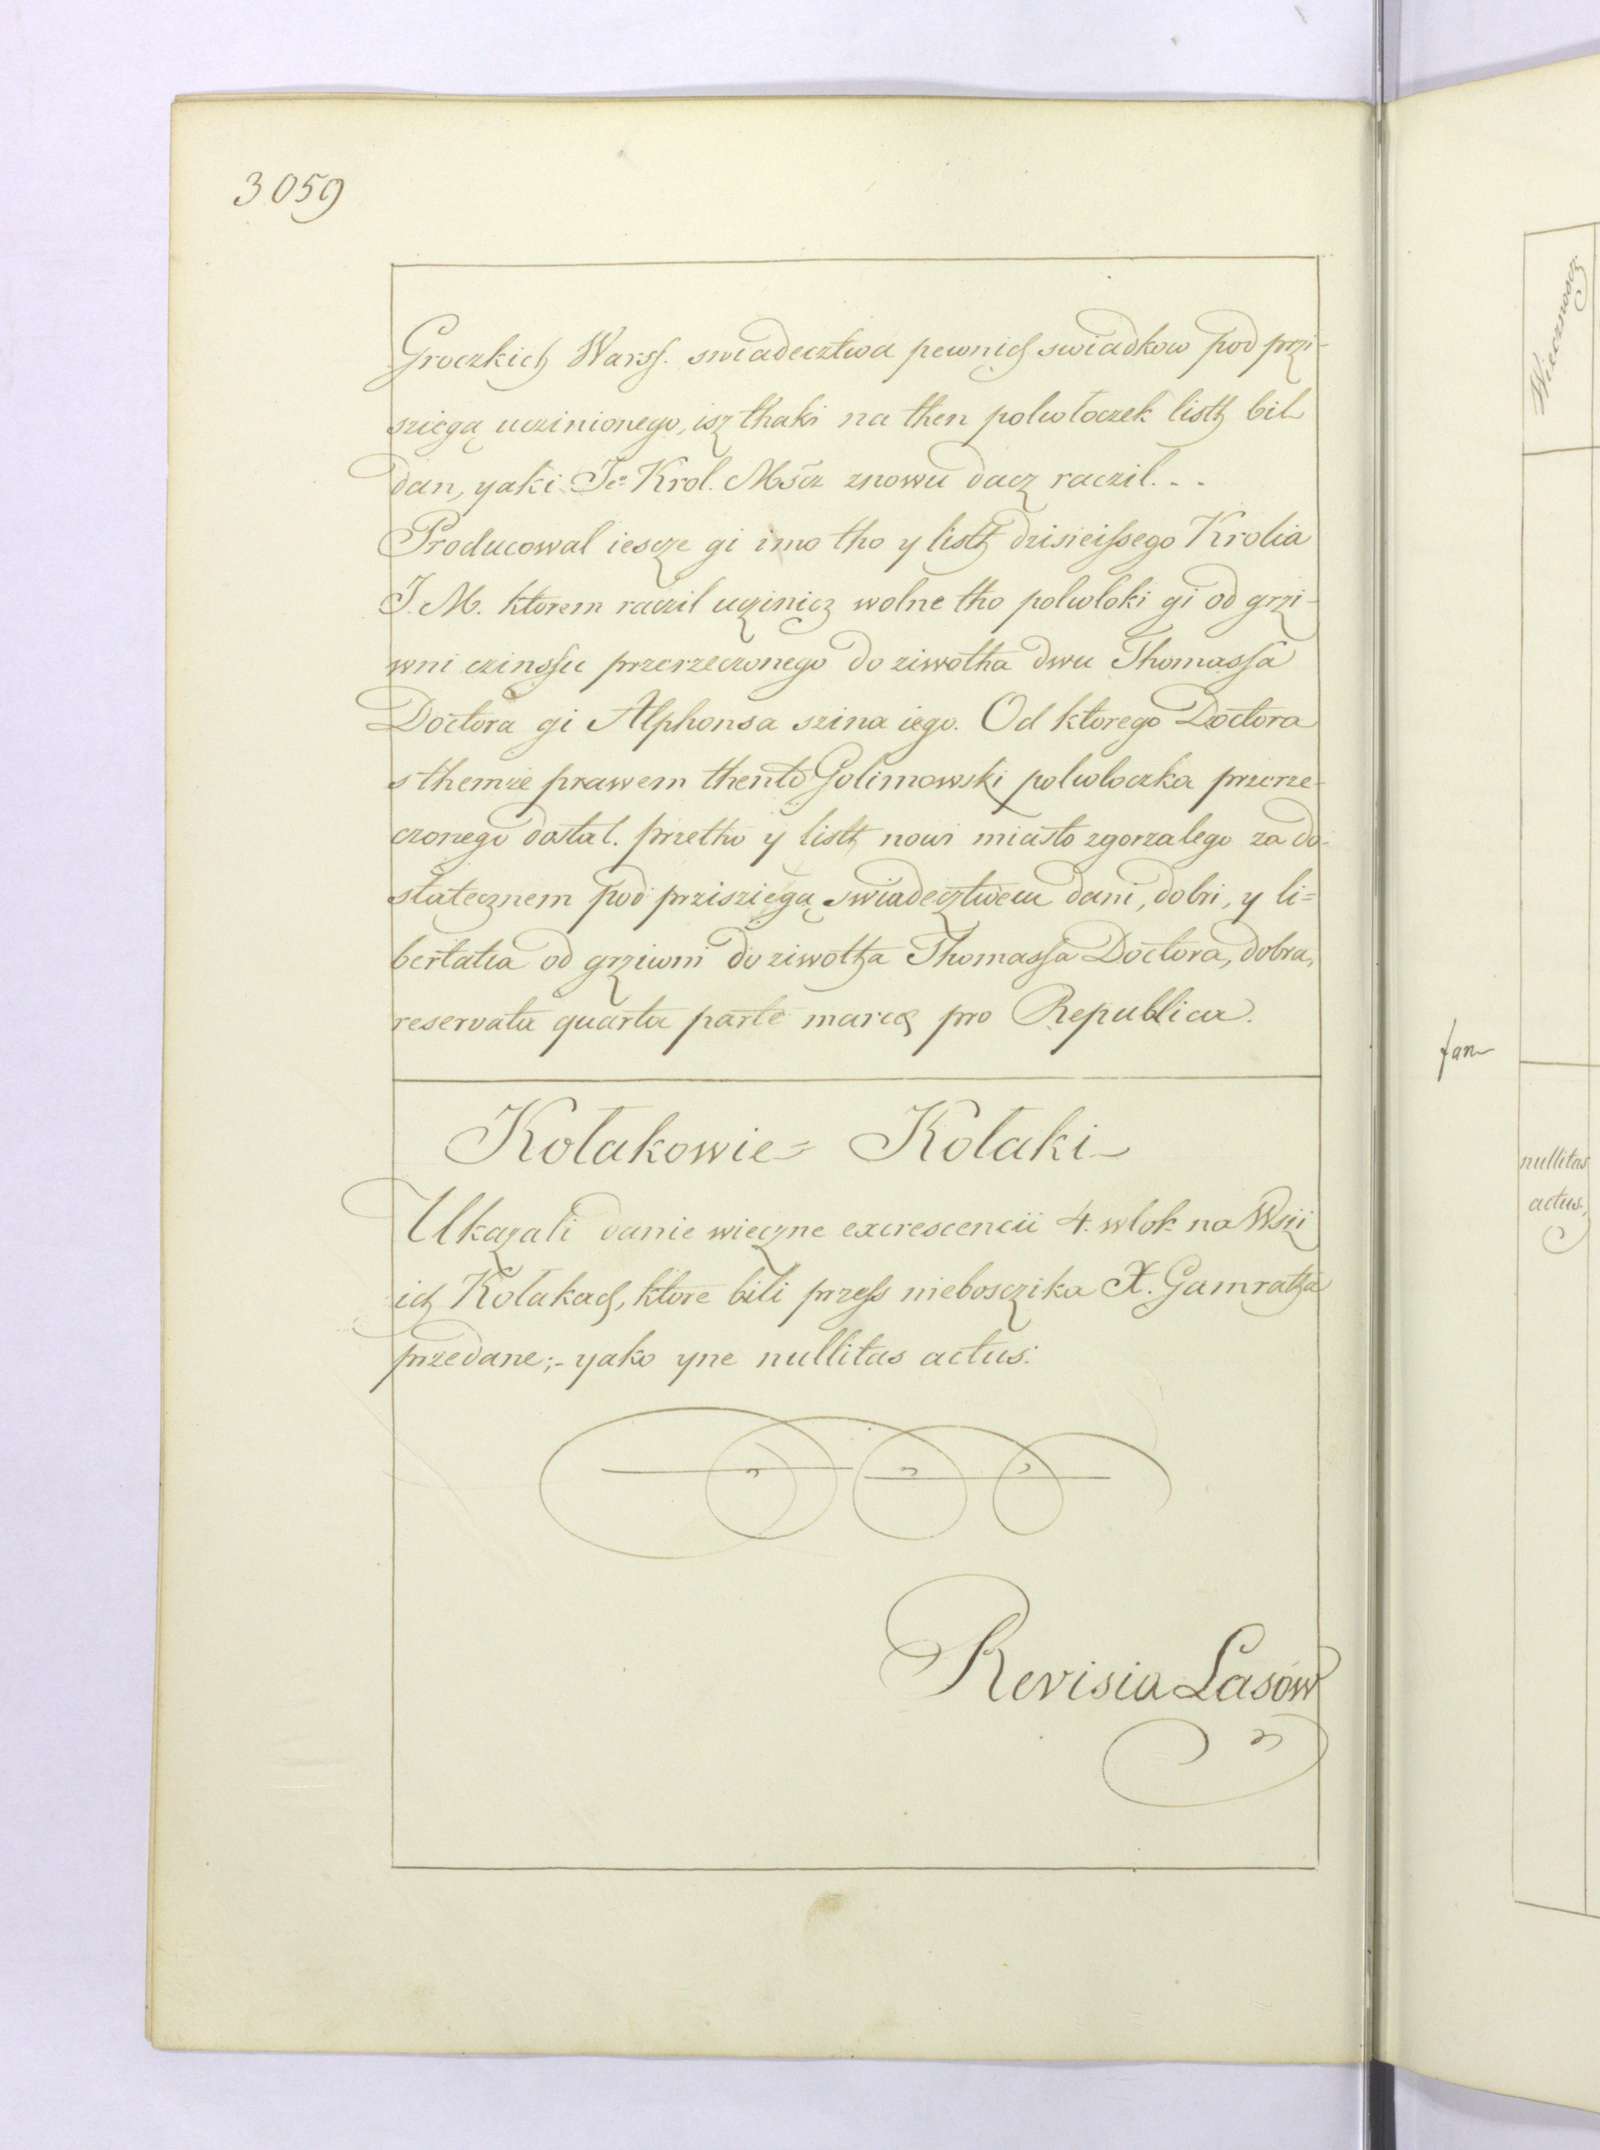 3059
Groczkich Warss. swiadecztwa pewnich swiadkow pod przi-
sziegą uczinionego, isz thaki na then polwłoczek listh bil
dan, yaki Je° Krol. Mścz znowu dacz raczil...
Producowal iescze gi imo tho y listh dzisieissego Krolia
J. M. ktorem raczil uczinicz wolne tho polwloki gi od grzi-
wni czinssu przerzeczonego do ziwotha dwu Thomassa
Doctora gi Alphonsa szina iego. Od ktorego Doctora
s themze prawem thento Golimowski polwloczka przerze-
czonego dostal. przetho y listh nowi miasto zgorzalego za do-
statecznem pod prziszięgą swiadecztwem dani, dobri, y li=
bertatia od grziwni do ziwotha Thomassa Doctora, dobra,
reservata quarta parte marcę pro Republica.
Kołakowie = Kołaki
Ukazali danie wieczne excrescencii 4. wlok na Wszi
ich Kołakach, ktore bili przess nieboszczika X. Gamratha
przedane;- yako yne nullitas actus.
Revisia Lasów
Wiecznoscz
fan
nullitas
actus,